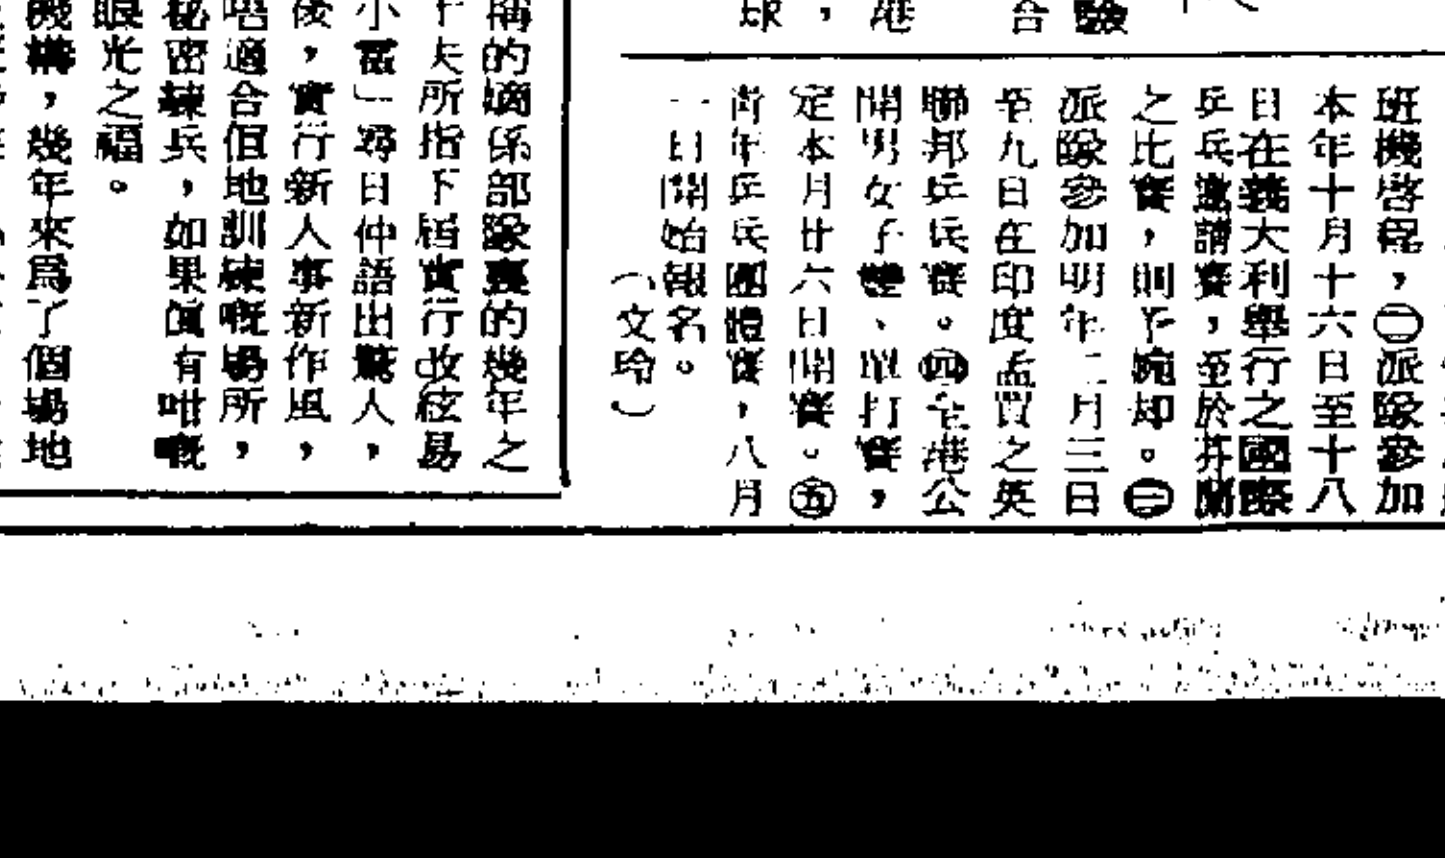 驗
合
港
，
球
班機啓程，㊁派隊參加
本年十月十六日至十八
日在義大利舉行之國際
乒乓邀請賽，至於芬蘭
之比賽，則予婉却。㊂
派隊參加明年二月三日
至九日在印度孟買之英
聯邦乒乓賽。㊃全港公
開男女子雙、單打賽，
定本月廿六日開賽。㊄
青年乒乓團體賽，八月
一日開始報名。
（文玲）
稱的嫡係部隊裏的幾年之
夫所指下屆實行改絃易
小富」尋日仲語出驚人，
後，實行新人事新作風，
唔適合但地訓練嘅場所，
秘密練兵，如果眞有咁嘅
眼光之福。
機構，幾年來爲了個場地